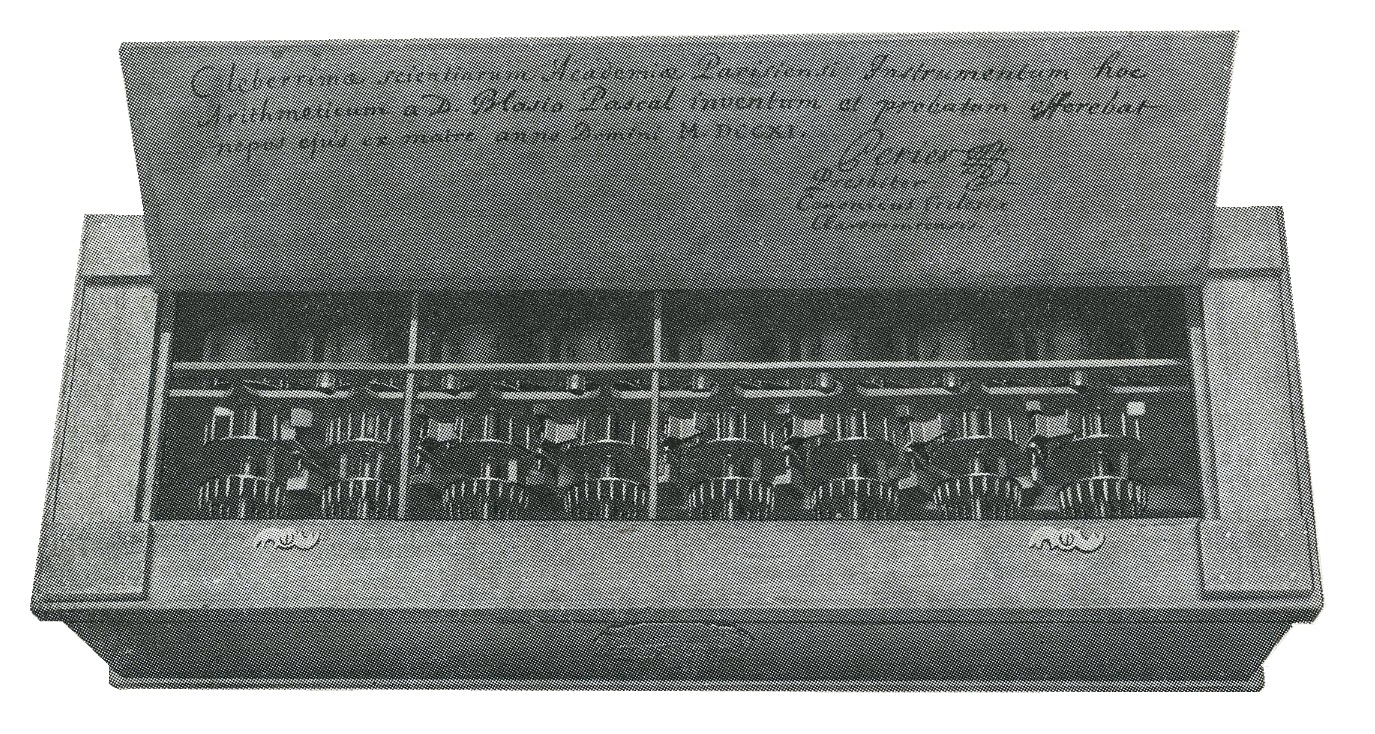 Celeberrimæ scientiarum Academiæ Parisiensi Instrumentum hoc
Arithmeticum a D. Blasio Pascal inventum et probatum offerebat
nepos ejus ex matre anno Domini M.DCCXI.
Perier
Presbiter
Canonicus Ecclesiæ
Claromontensis.